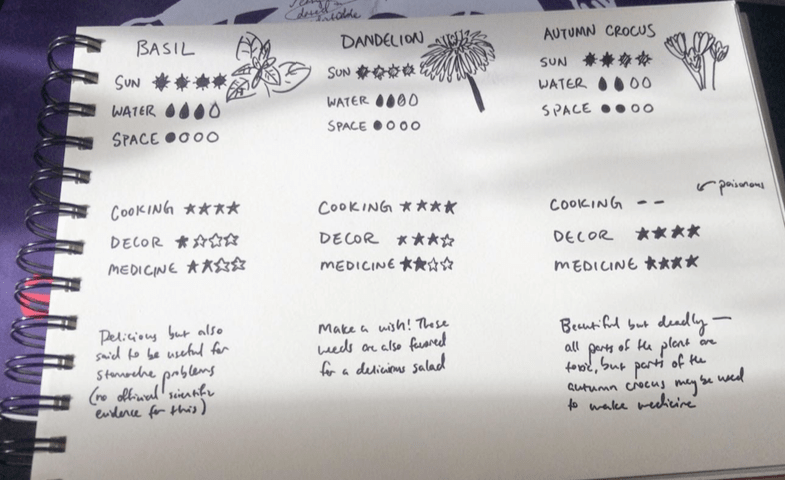 BASIL
SUN
WATER
SPACE
COOKING ★★★★
DECOR ★☆☆☆
MEDICINE ★★☆☆
Delicious but also
said to be useful for
stomache problems
(no official scientific
evidence for this)
DANDELION
SUN
WATER
SPACE ●○○○
COOKING ★★★★
DECOR ★★★☆
MEDICINE ★★☆☆
Make a wish! These
weeds are also favored
for a delicious salad
AUTUMN CROCUS
SUN
WATER
SPACE ●●○○
COOKING – –
poisonous
DECOR ★★★★
MEDICINE ★★★★
Beautiful but deadly —
all parts of the plant are
toxic, but parts of the
autumn crocus may be used
to make medicine